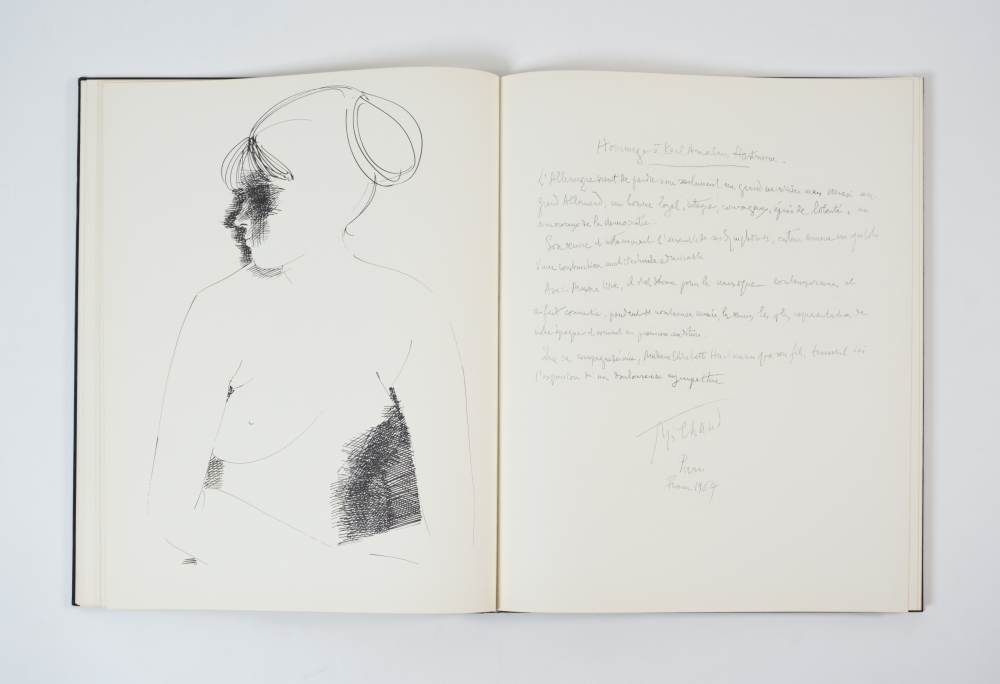 Hommage à Karl Amadeus Hartmann.
L'Allemagne vient de perdre non seulement un grand musicien mais aussi un
grand Allemand, un homme loyal, intègre, courageux, épris de liberté, un
amoureux de la démocratie.
Son œuvre et notamment l'ensemble de ses Symphonies,
d'une construction architecturale admirable
Avec Musica Viva, il pour la musique contemporaine, et
a fait connaître, pendant de nombreuses années les œuvres les plus représentatives de
notre époque et souvent en première audition.
Que sa compagne, Madame Elisabeth Hartmann que son fils, trouvent ici
l'expression de ma douloureuse sympathie
Milhaud
Paris
Février 1964